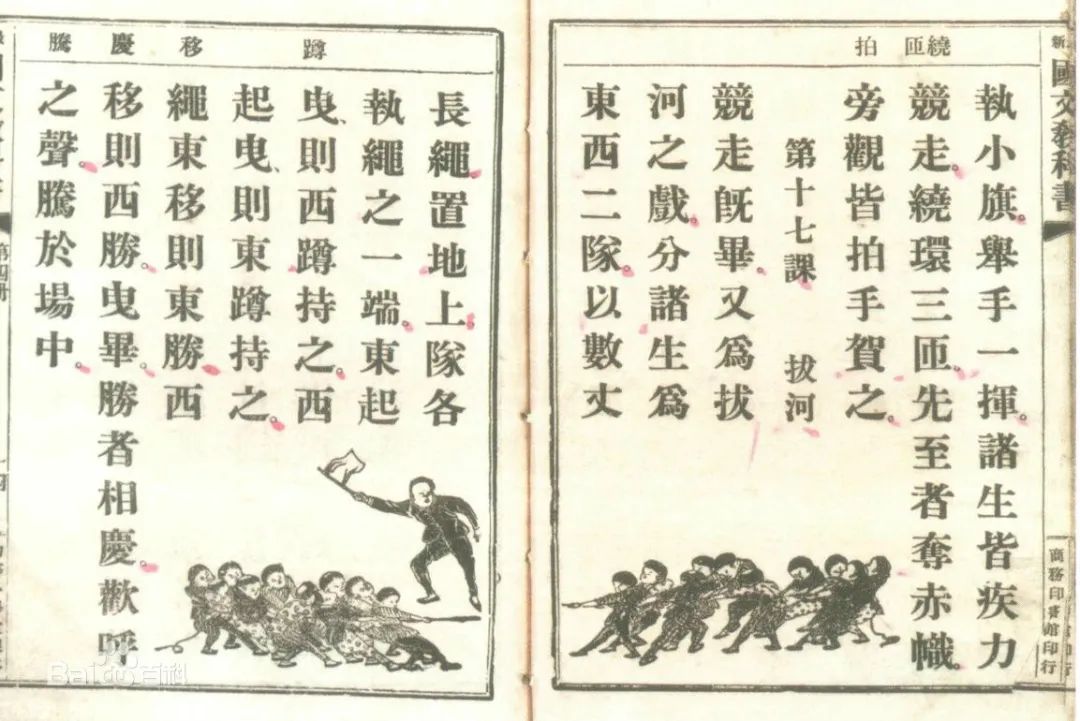 新國文教科書
商務印書館印行
繞匝 拍
執小旗舉手一揮諸生皆疾力
競走繞環三匝先至者奪赤幟
旁觀皆拍手賀之
第十七課 拔河
競走旣畢又爲拔
河之戲分諸生爲
東西二隊以數丈
蹲 移 慶 騰
長繩置地上隊各
執繩之一端東起
曳、則西蹲持之西
起曳、則東蹲持之
繩東移則東勝西
移則西勝曳畢勝者相慶歡呼
之聲騰於場中
第四冊
Baidu百科